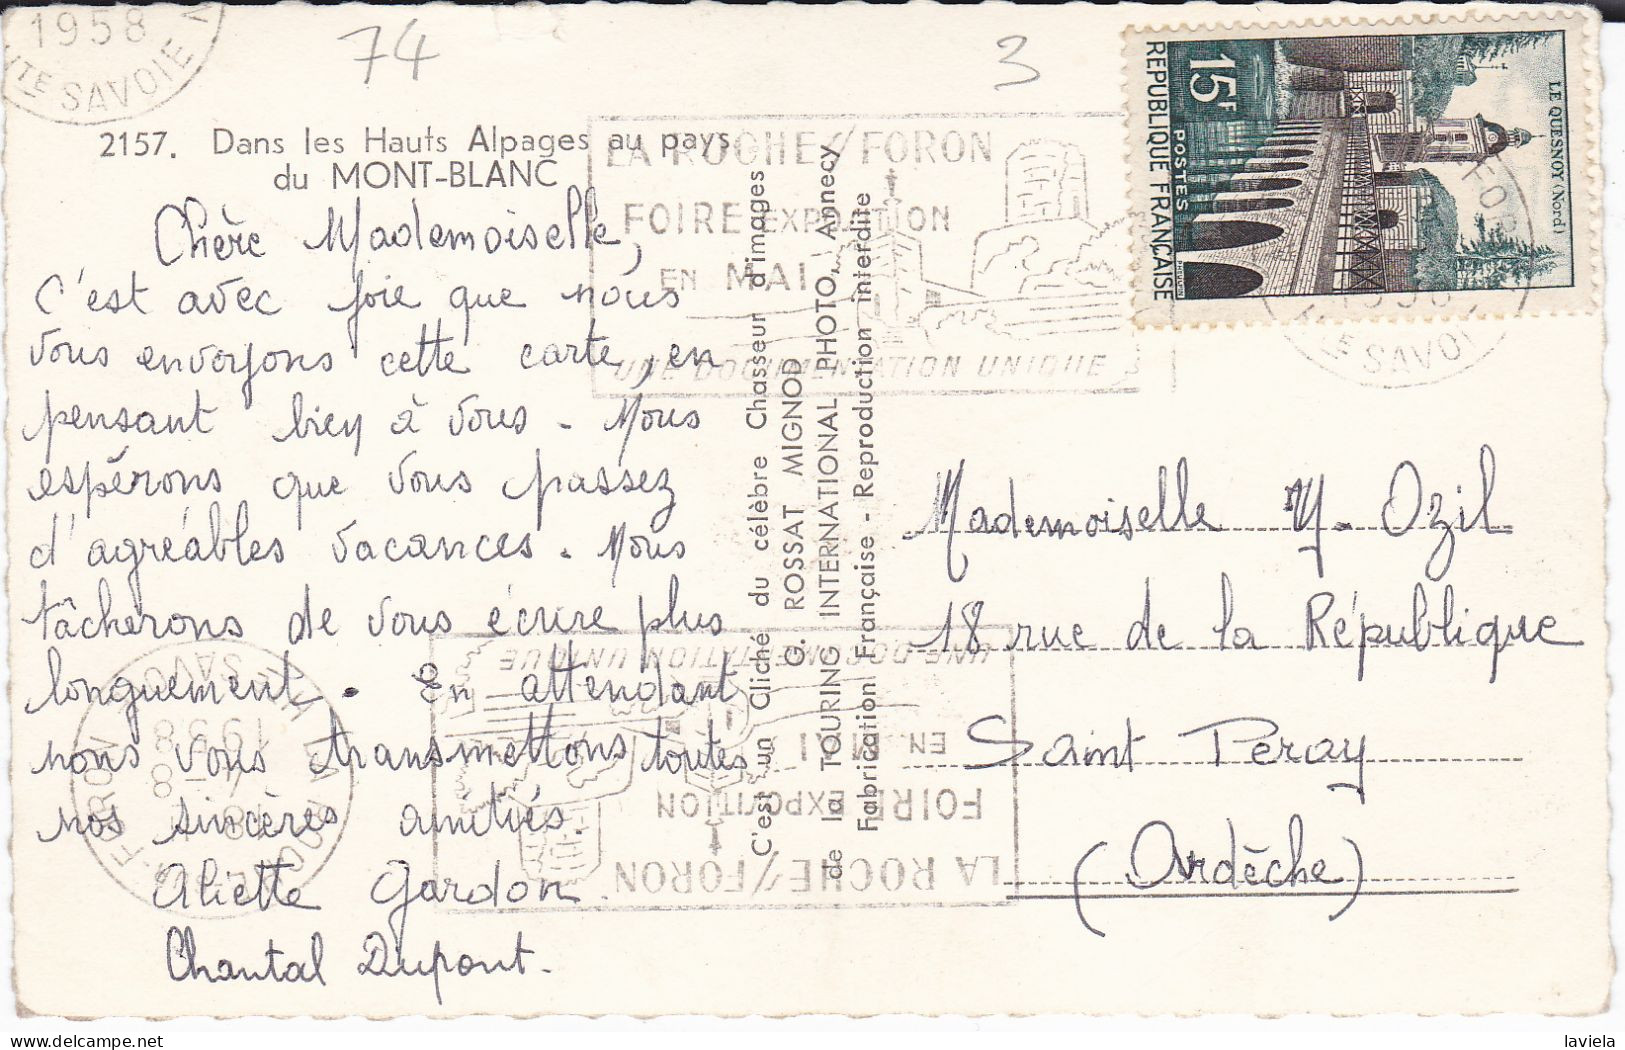 1958
HTE SAVOIE
74
3
2157. Dans les Hauts Alpages au pays
du MONT-BLANC
LA ROCHE S/FORON
FOIRE EXPOSITION
EN MAI
UNE DOCUMENTATION UNIQUE
15F
POSTES
REPUBLIQUE FRANÇAISE
LE QUESNOY (Nord)
HTE SAVOIE
Chère Mademoiselle,
C'est avec joie que nous
vous envoyons cette carte, en
pensant bien à vous. Nous
espérons que vous passez
d'agréables vacances. Nous
tâcherons de vous écrire plus
longuement. En attendant
nous vous transmettons toutes
nos sincères amitiés
Aliette Gardon.
Chantal Dupont.
C'est un Cliché du célèbre Chasseur d'images
G. ROSSAT MIGNOD
de la TOURING INTERNATIONAL PHOTO, Annecy
Fabrication Française - Reproduction interdite
Mademoiselle Y. Ozil
18 rue de la République
Saint Peray
(Ardèche)
LA ROCHE S/FORON
FOIRE EXPOSITION
EN MAI
UNE DOCUMENTATION UNIQUE
1958
laviela